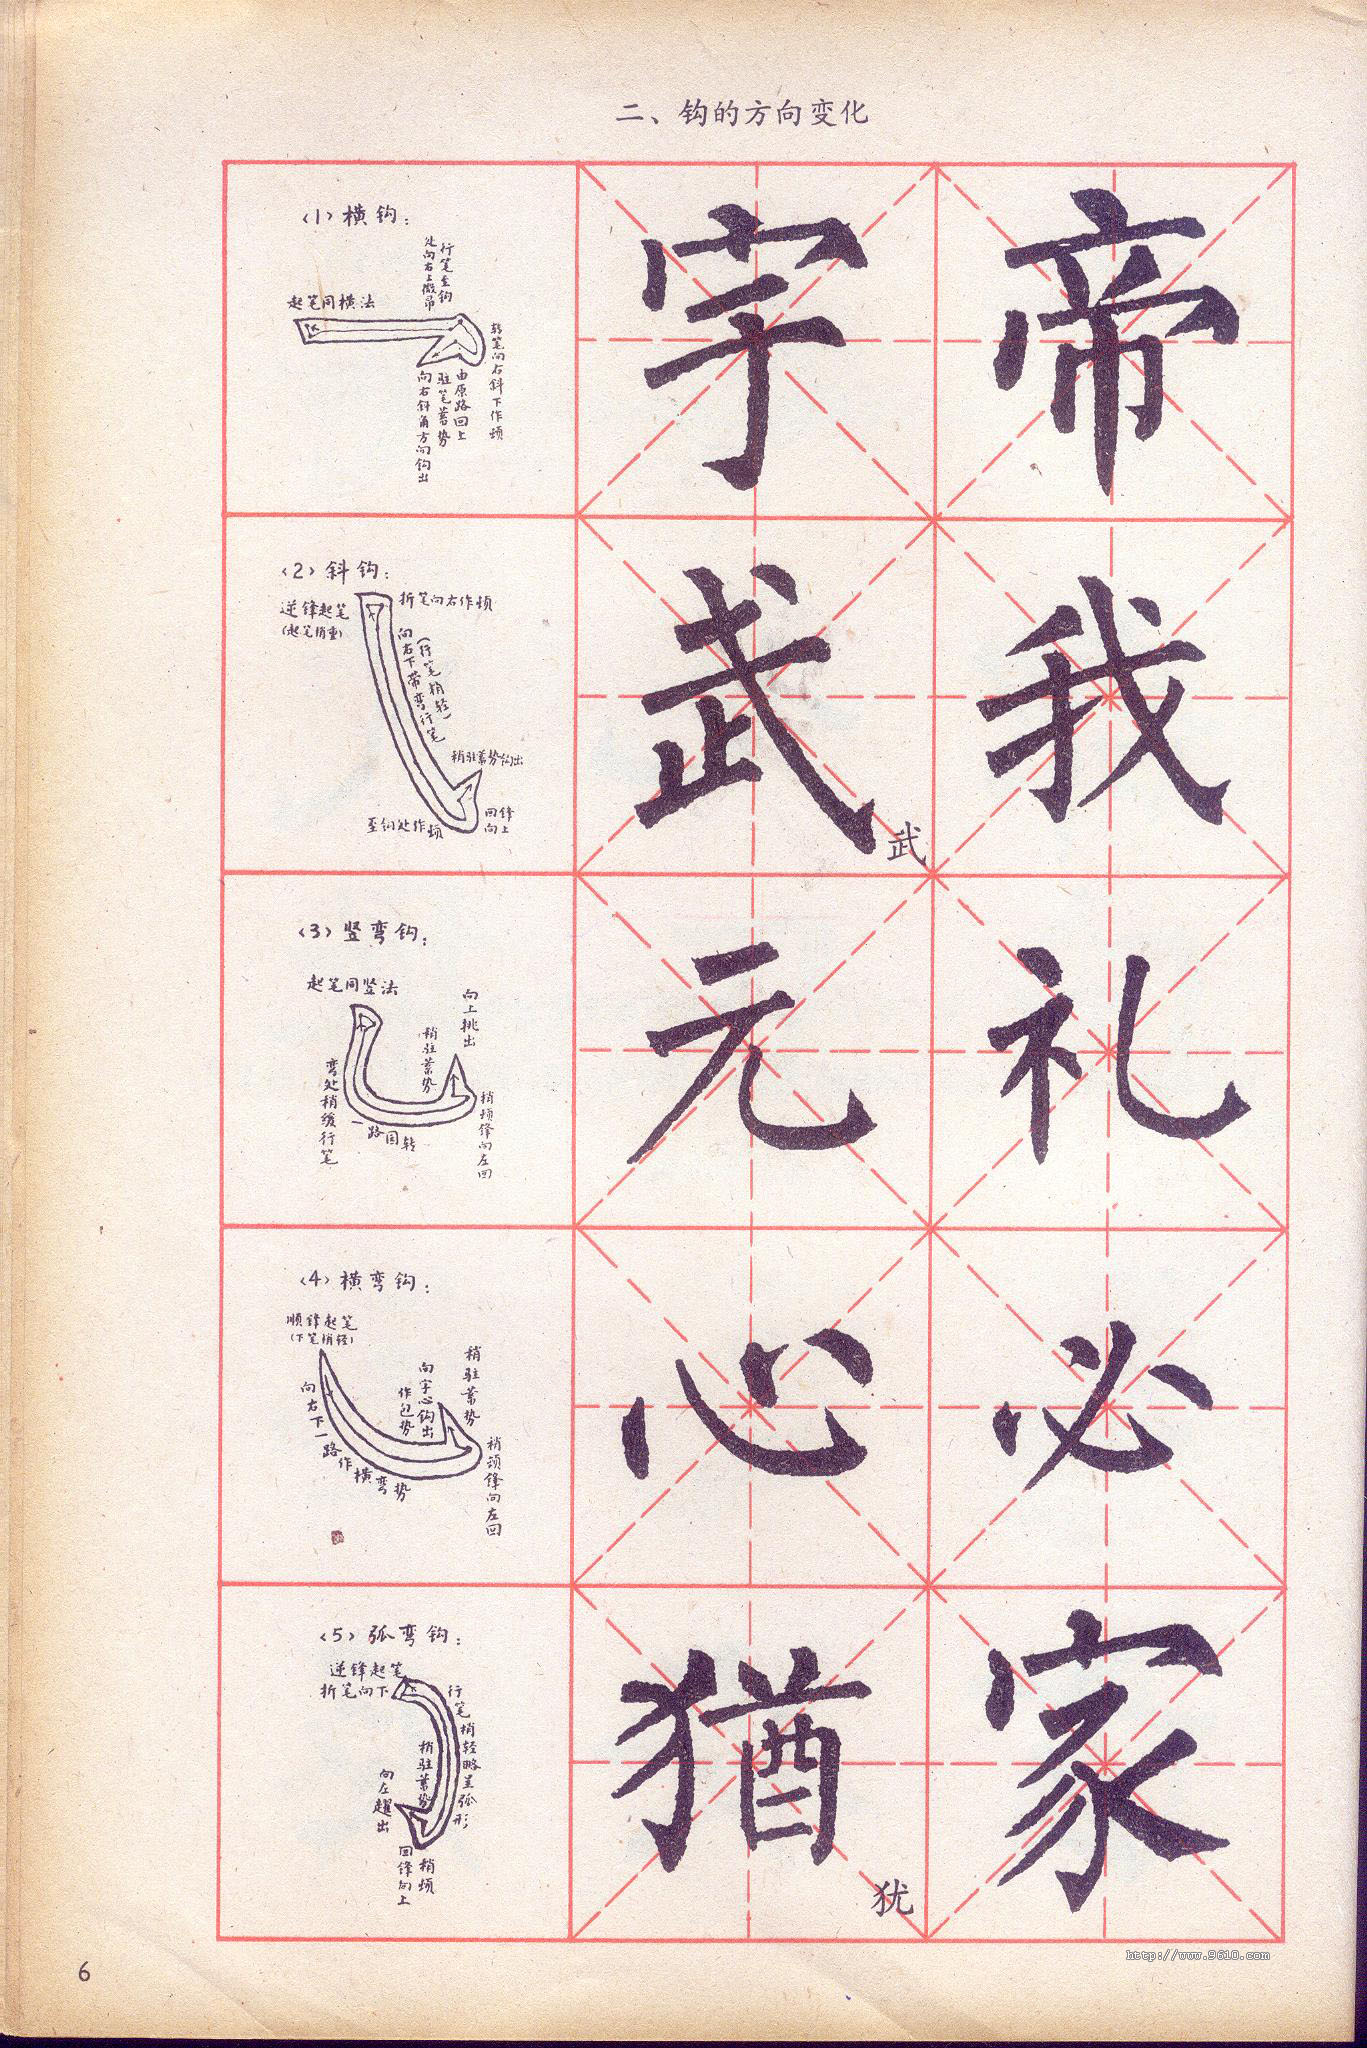 二、钩的方向变化
(1)横钩:
起笔同横法
行笔至钩
处向右上微昂
转笔向右斜下作顿
由原路回上
驻笔蓄势
向右斜角方向钩出
字
帝
(2)斜钩:
逆锋起笔
(起笔稍重)
折笔向右作顿
(行笔稍轻)
向右下带弯行笔
稍驻蓄势钩出
至钩处作顿
回锋
向上
武
武
我
(3)竖弯钩:
起笔同竖法
向上挑出
稍驻蓄势
弯处稍缓行笔
一路圆转
稍顿锋向左回
元
礼
(4)横弯钩:
顺锋起笔
(下笔稍轻)
向右下一路作横弯势
稍驻蓄势
向字心钩出
作包势
稍顿锋向左回
心
必
(5)弧弯钩:
逆锋起笔
折笔向下
行笔稍轻略呈弧形
稍驻蓄势
向左趯出
稍顿
回锋向上
猶
犹
家
6
http://www.9610.com